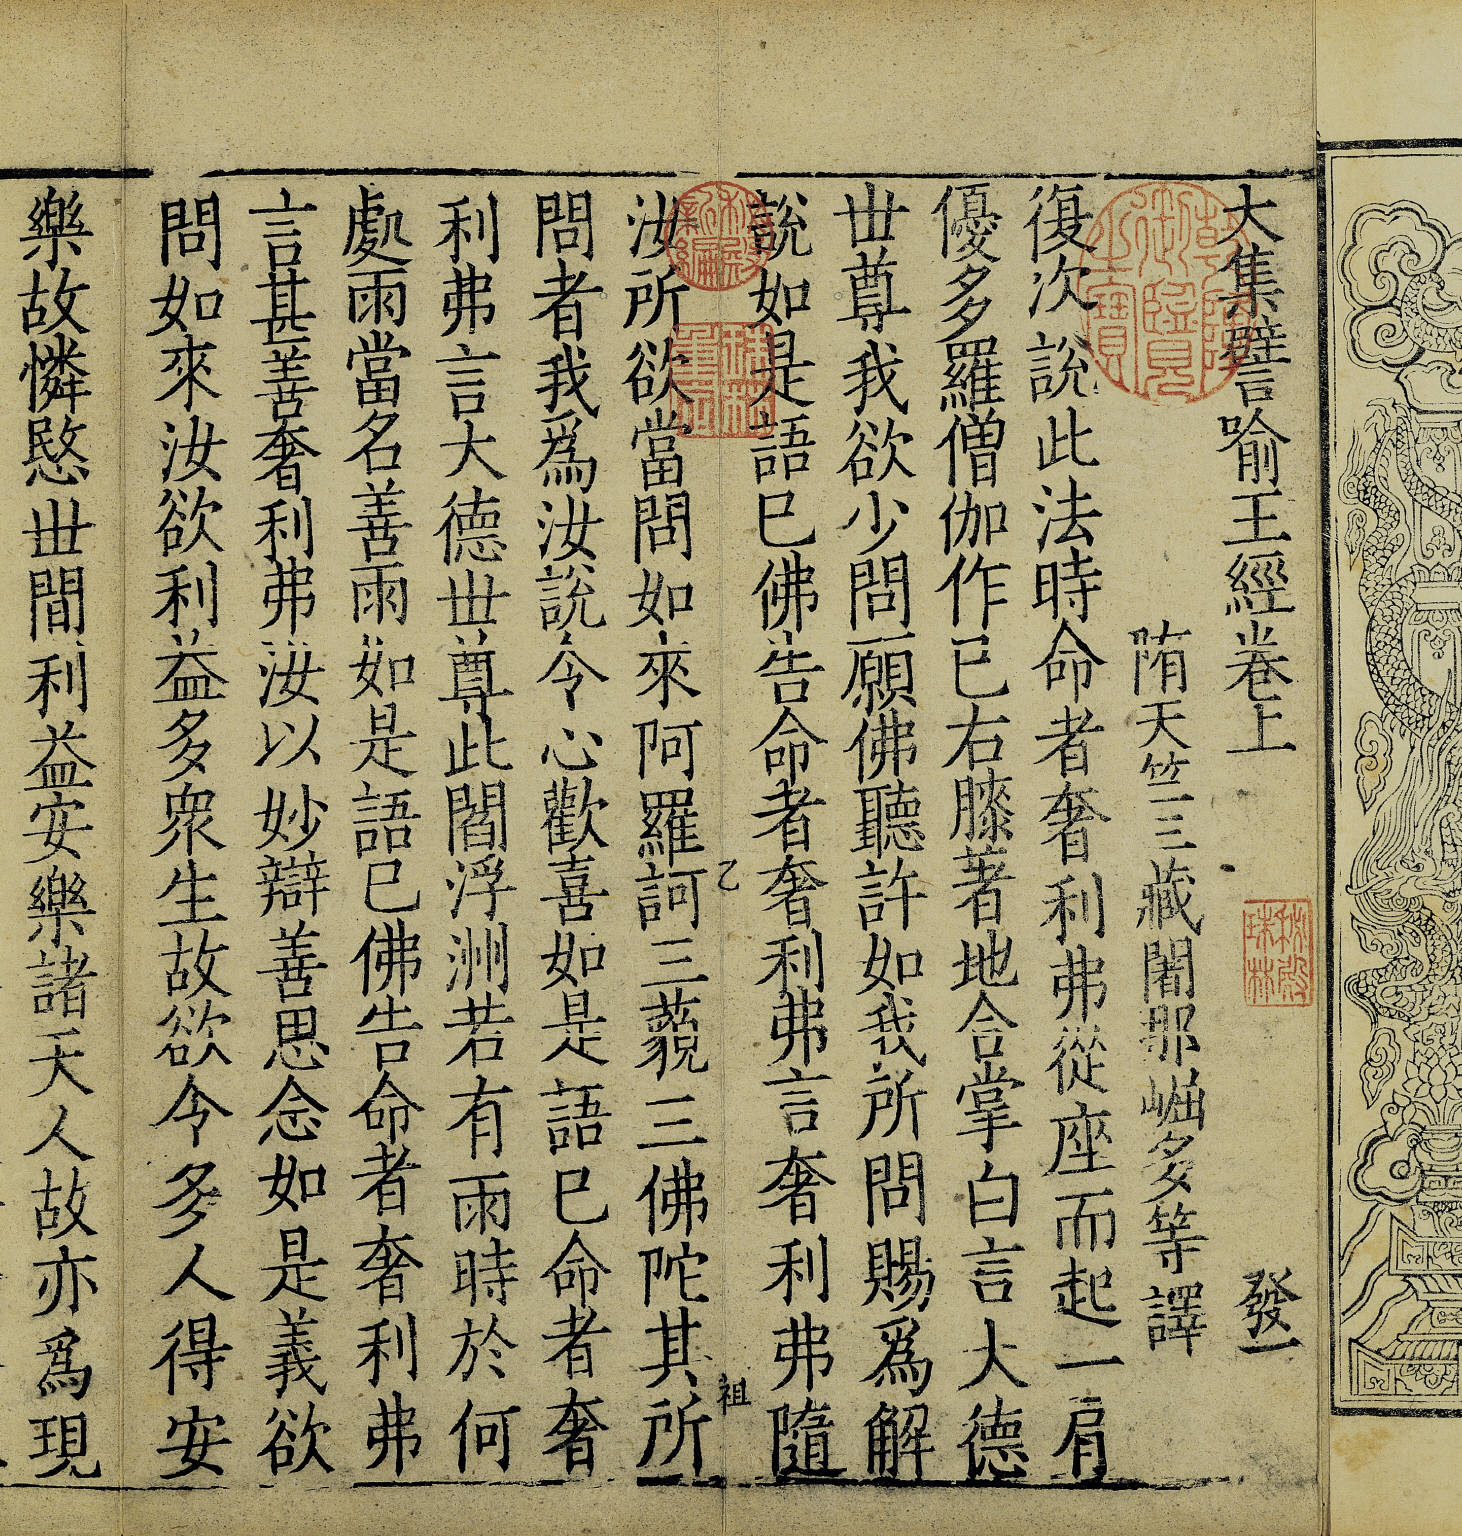 大集譬喻王經卷上
發一
隋天竺三藏闍那崛多等譯
復次說此法時命者奢利弗從座而起一肩
優多羅僧伽作已右膝著地合掌白言大德
世尊我欲少問願佛聽許如我所問賜爲解
說如是語已佛告命者奢利弗言奢利弗隨
乙
祖
汝所欲當問如來阿羅訶三藐三佛陀其所
問者我爲汝說令心歡喜如是語已命者奢
利弗言大德世尊此閻浮洲若有雨時於何
處雨當名善雨如是語已佛告命者奢利弗
言甚善奢利弗汝以妙辯善思念如是義欲
問如來汝欲利益多衆生故欲令多人得安
樂故憐愍世間利益安樂諸天人故亦爲現
乾隆御覽之寶
秘殿新編
秘殿珠林